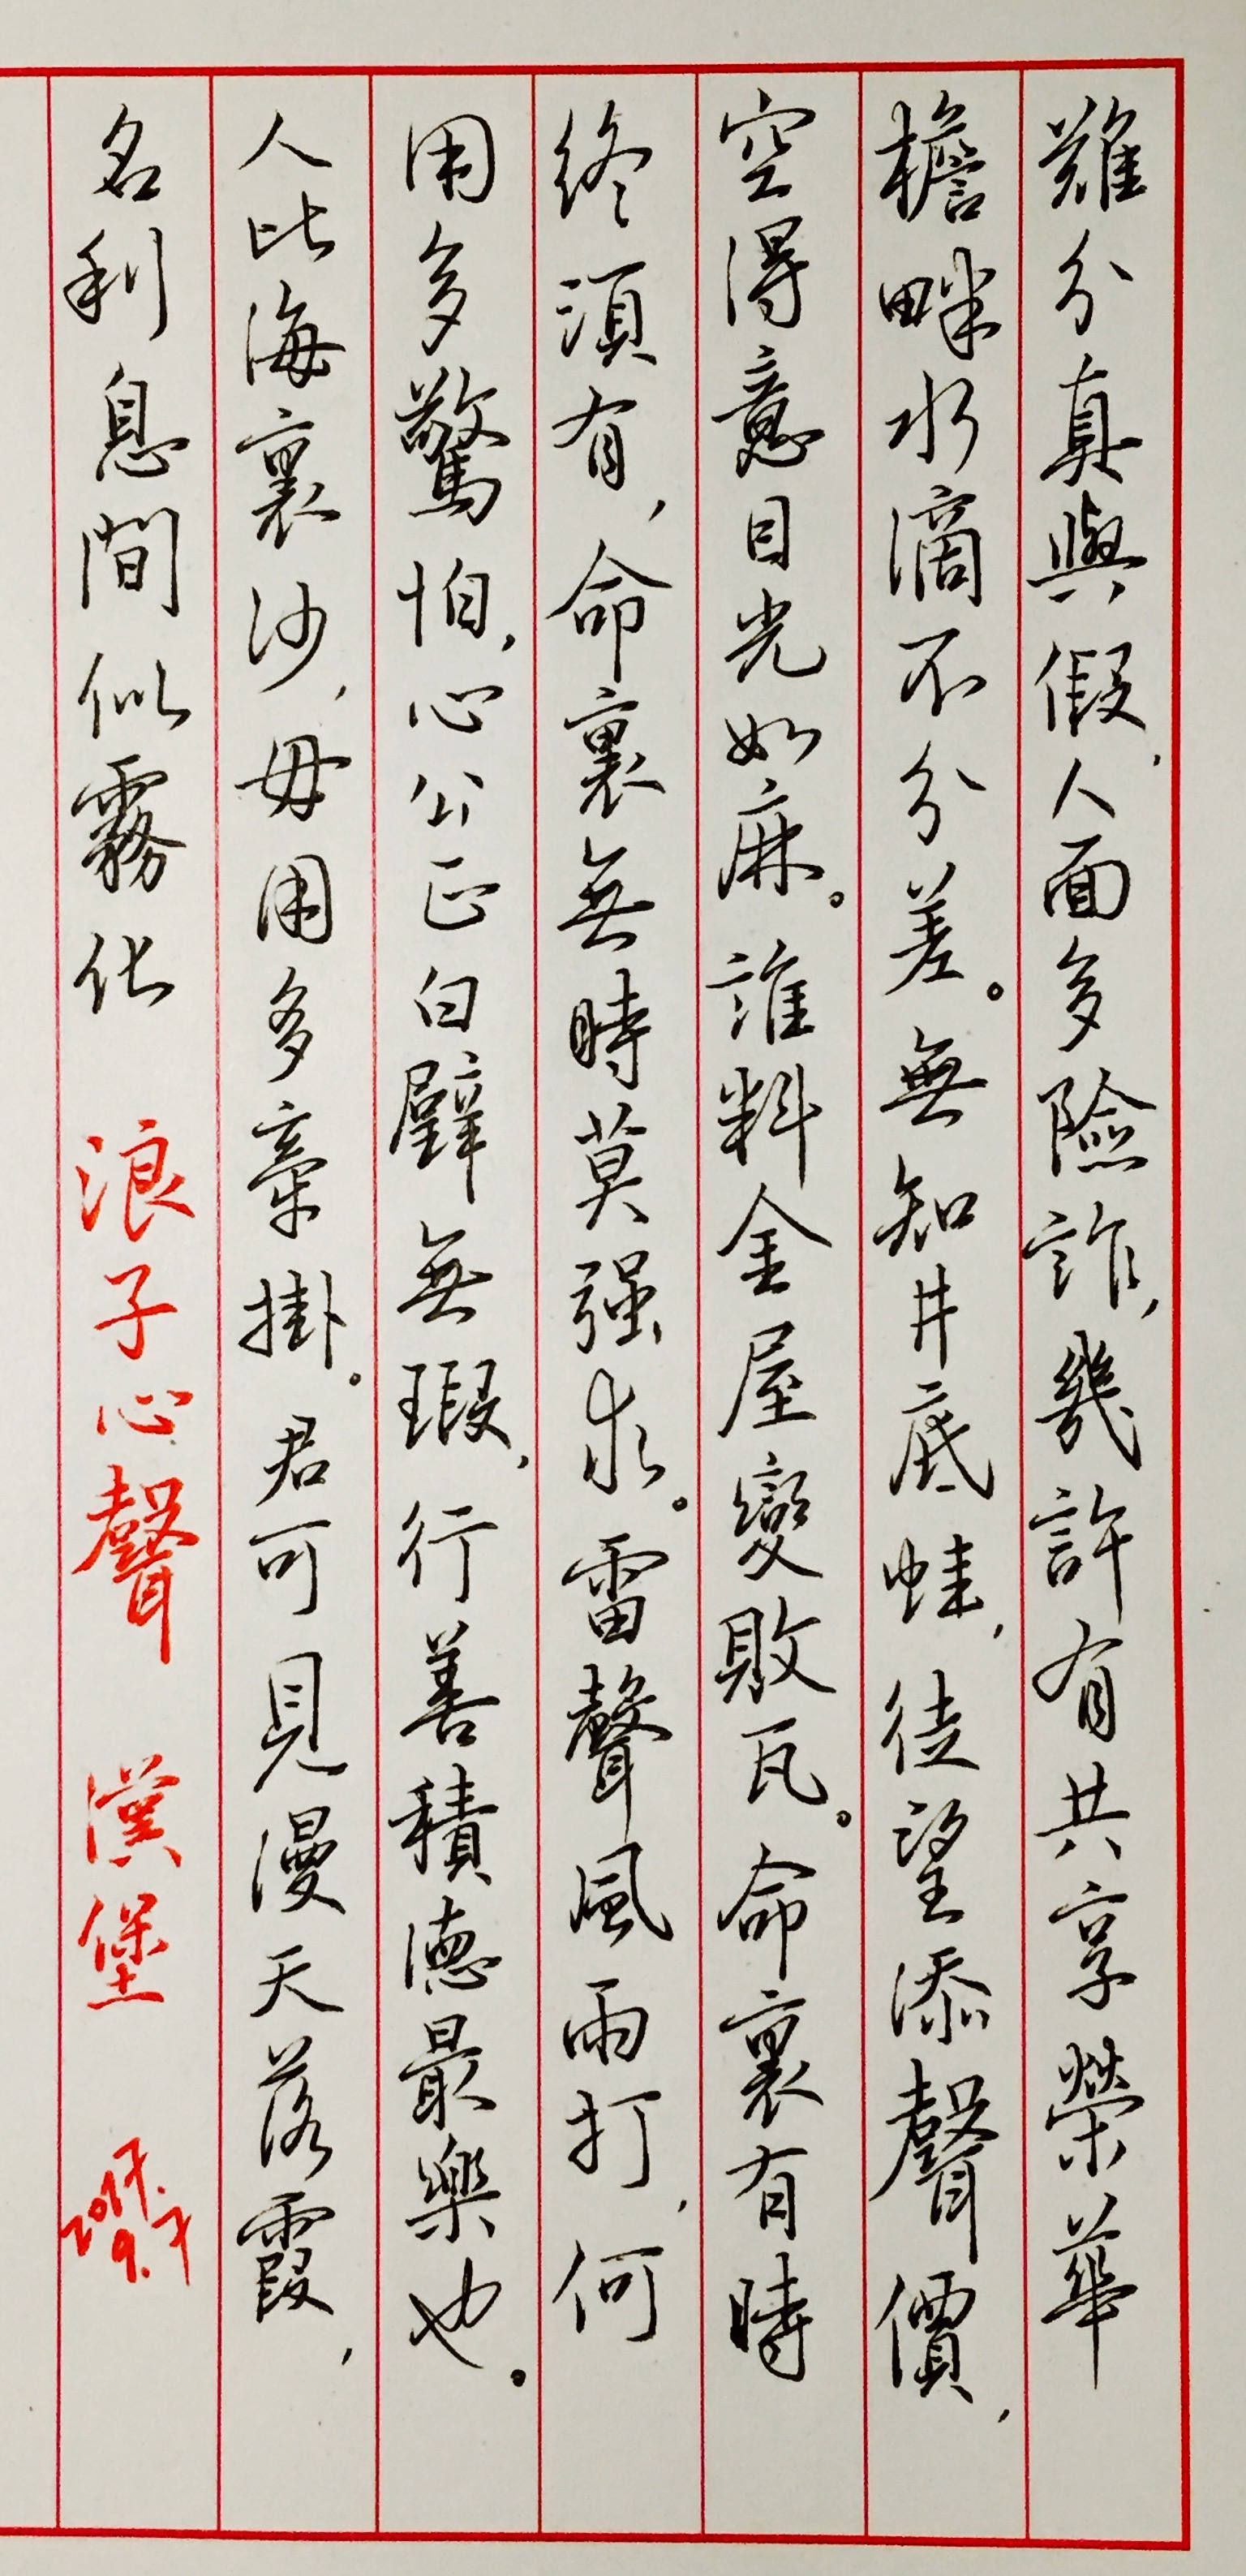 難分真與假，人面多險詐，幾許有共享榮華
檐畔水滴不分差。無知井底蛙，徒望添聲價，
空得意目光如麻。誰料金屋變敗瓦。命裏有時
終須有，命裏無時莫强求。雷聲風雨打，何
用多驚怕，心公正白璧無瑕，行善積德最樂也。
人比海裏沙，毋用多牽掛。君可見漫天落霞，
名利息間似霧化 浪子心聲 漢堡 2017.9.7